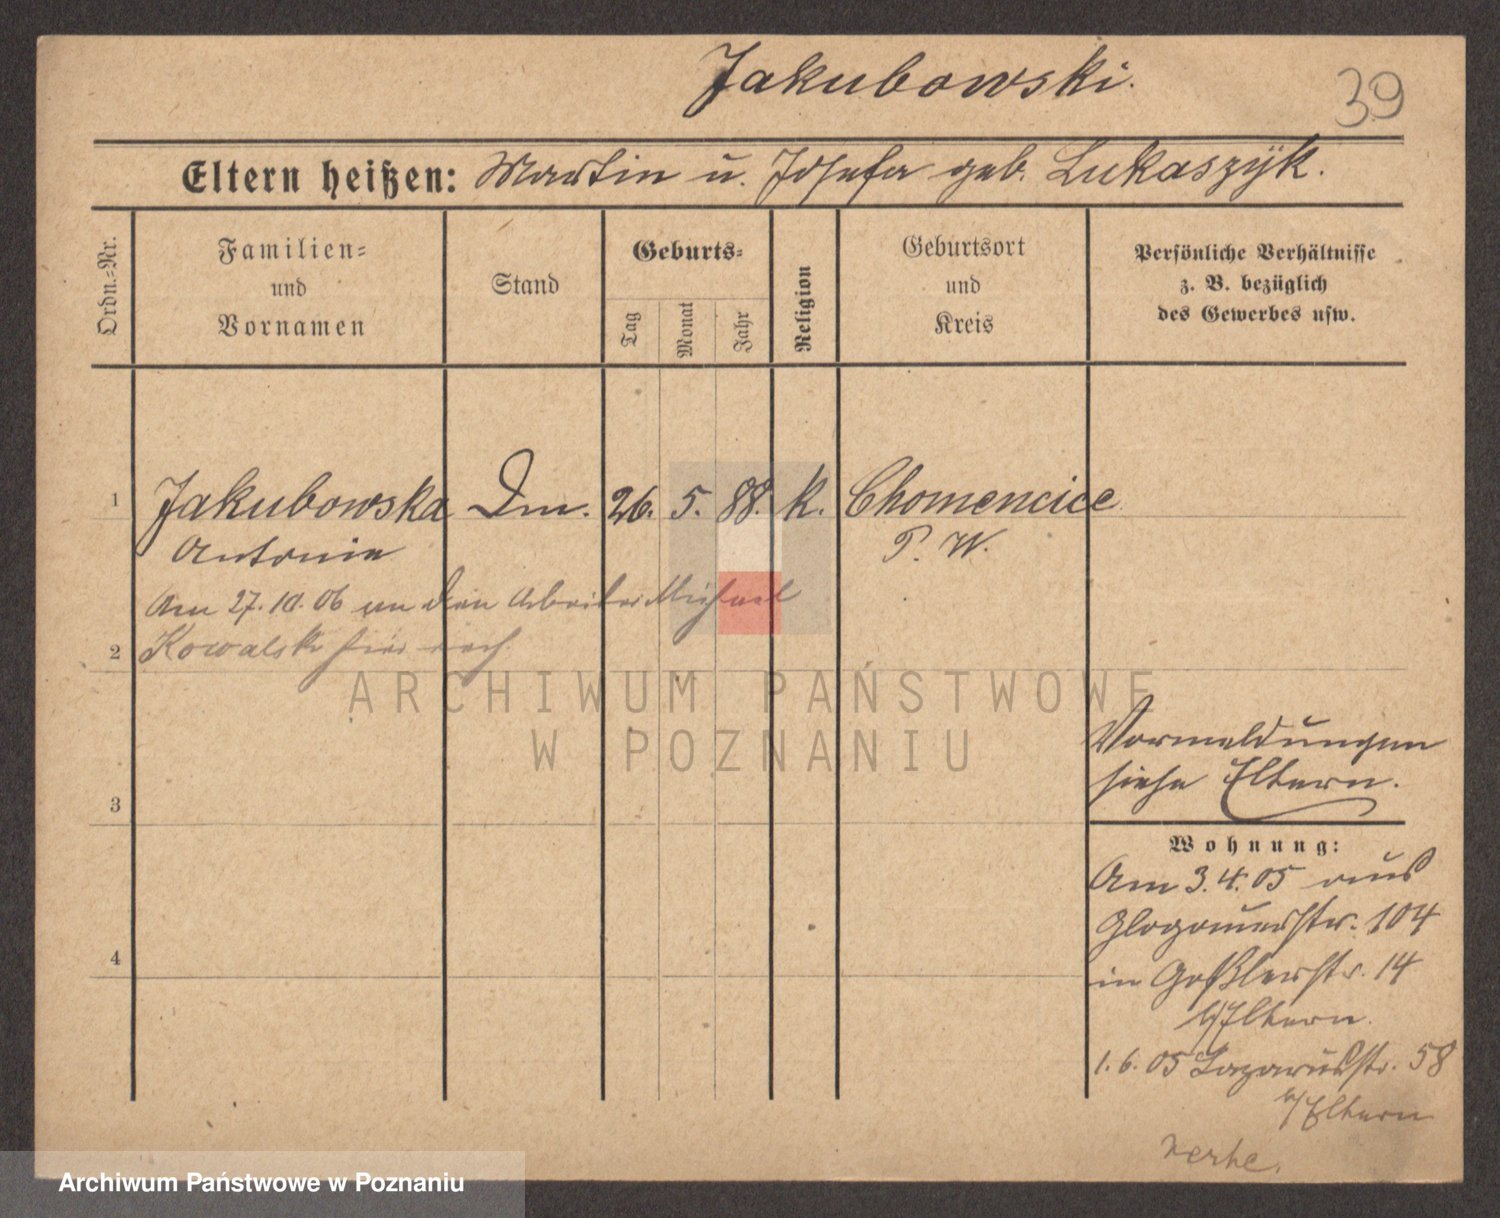 Jakubowski.
39
Eltern heißen: Martin u. Josefa geb. Lukaszÿk.
Ordn.=Nr.
Familien=
und
Vornamen
Stand
Geburts=
Tag
Monat
Jahr
Religion
Geburtsort
und
Kreis
Persönliche Verhältnisse
z. B. bezüglich
des Gewerbes usw.
1 Jakubowska Dm. 26. 5. 88. k. Chomencice
Antonie P. W.
Am 27.10.06 an den Arbeiter Michael
2 Kowalski hier verh.
ARCHIWUM PAŃSTWOWE
W POZNANIU
Vormeldungen
siehe Eltern.
3
Wohnung:
Am 3.4.05 aus
Glogauerstr. 104
4
in Goßlerstr. 14
b/Eltern.
1.6.05 Lazarusstr. 58
b/Eltern
Archiwum Państwowe w Poznaniu